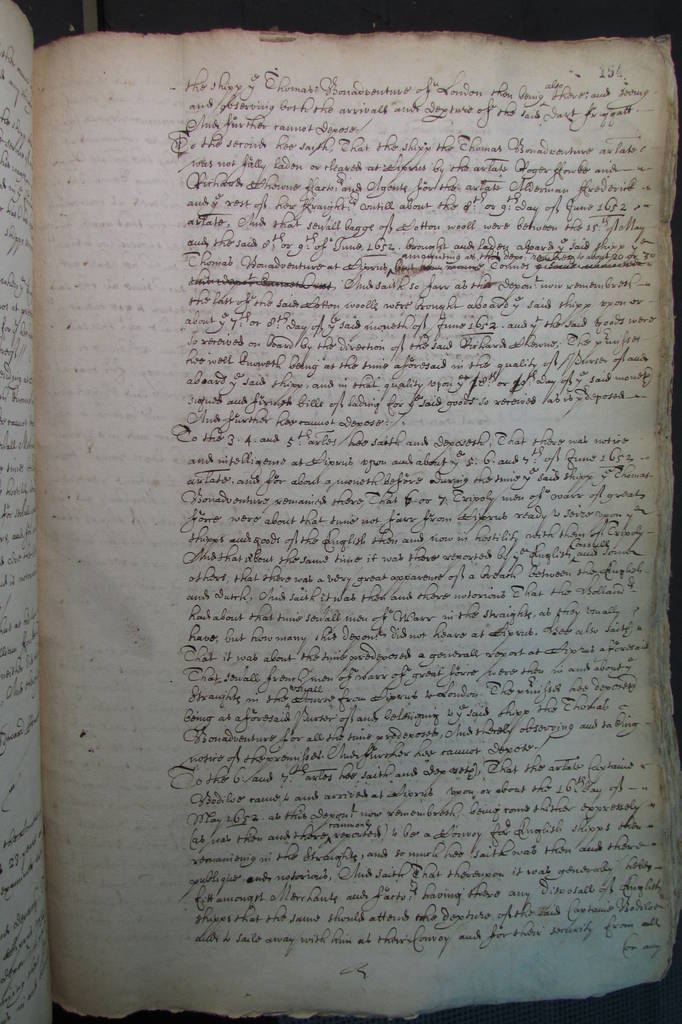 154
the shipp ye Thomas Bonadventure of London then being also there and seeing
and observing both the arrivall and depture of the said Dart ffriggatt.
And further cannot depose./
To the second hee saith, That the shipp the Thomas Bonadventure arlate
was not fully laden or cleared at Ciprus by the arlate Roger ffowke and
Richard Cherne ffactors and Agents for the arlate Alderman ffrederick
and ye rest of her ffraighters untill about the 8th or 9th day of June 1652
arlate, And that severall baggs of Cotton wooll were between the 15th of May
and the said 8th or 9th of June 1652. brought and laden aboard ye said shipp ye
Thomas Bonadventure at Ciprus, amounting as this depot to about 20 or 30
Tonnes. And saith so farr as this depont now remembreth
the last of the said Cotton woolls were brought aboard ye said shipp upon or
about ye 7th or 8th day of ye said moneth of June 1652. and ye the said goods were
so received on board by the direction of the said Richard Cherne. The prmisses
hee well knoweth being at the time aforesaid in the quality of Purser of and
aboard ye said shipp, and in that quality upon ye 8th or 9th day of ye said moneth
signed and firmed bills of lading for ye said goods so received as is predeposed
And further hee cannot depose./.
To the 3. 4. and 5th arles hee saith and deposeth, That there was notice
and intelligence at Ciprus upon and about ye 5. 6. and 7th of June 1652
arlate. and for about a moneth before during the time ye said shipp ye Thomas
Bonadventure remained there, That 6 or 7. Tripoly men of warr of great
force were about that time not farr from Ciprus ready to seize upon ye
shipps and goods of the English then and now in hostility with them of Tripoly.
And that about the same time it was there reported by ye English Consull and some
others, that there was a very great apparence of a breach between the English
and dutch, And saith it was then and there notorious That the Hollandrs
had about that time severall men of Warr in the straights, as they usually
have, but how many this depont did not heare at Ciprus. Hee also saith
That it was about the time predeposed a generall report at Ciprus aforesaid
That severall french men of warr of great force were then in and about ye
Straights in the usuall Course from Ciprus to London The prmisses hee deposeth
being as aforesaid Purser of and belonging to ye said shipp the Thomas
Bonadventure for all the time predeposed, And thereby observing and taking
notice of the premisses. And further hee cannot depose./
To the 6. and 7th arles hee saith and deposeth, That the arlate Captaine
Bodiloe came to and arrived at Ciprus upon or about the 16th day of
May 1652. as this depont now remembreth being come thither expressely
(as was then and there commonly reported) to be a Convoy for English shipps then
remaineing in the Straights, and so much hee saith was then and there
publique and notorious, And saith That thereupon it was generally held
fitt amongst Merchants and ffactors having there any disposall of English
shipps that the same should attend the depture of the said Captaine Bodiloe
and to saile away with him as their Convoy and for their security from all
or any